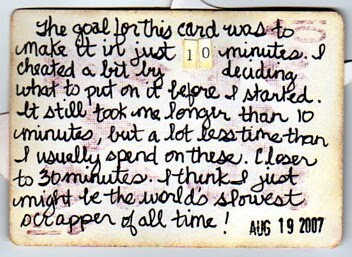 The goal for this card was to
make it in just 10 minutes. I
cheated a bit by deciding
what to put on it before I started.
It still took me longer than 10
minutes, but a lot less time than
I usually spend on these. Closer
to 30 minutes. I think I just
might be the world's slowest
scrapper of all time!
AUG 19 2007